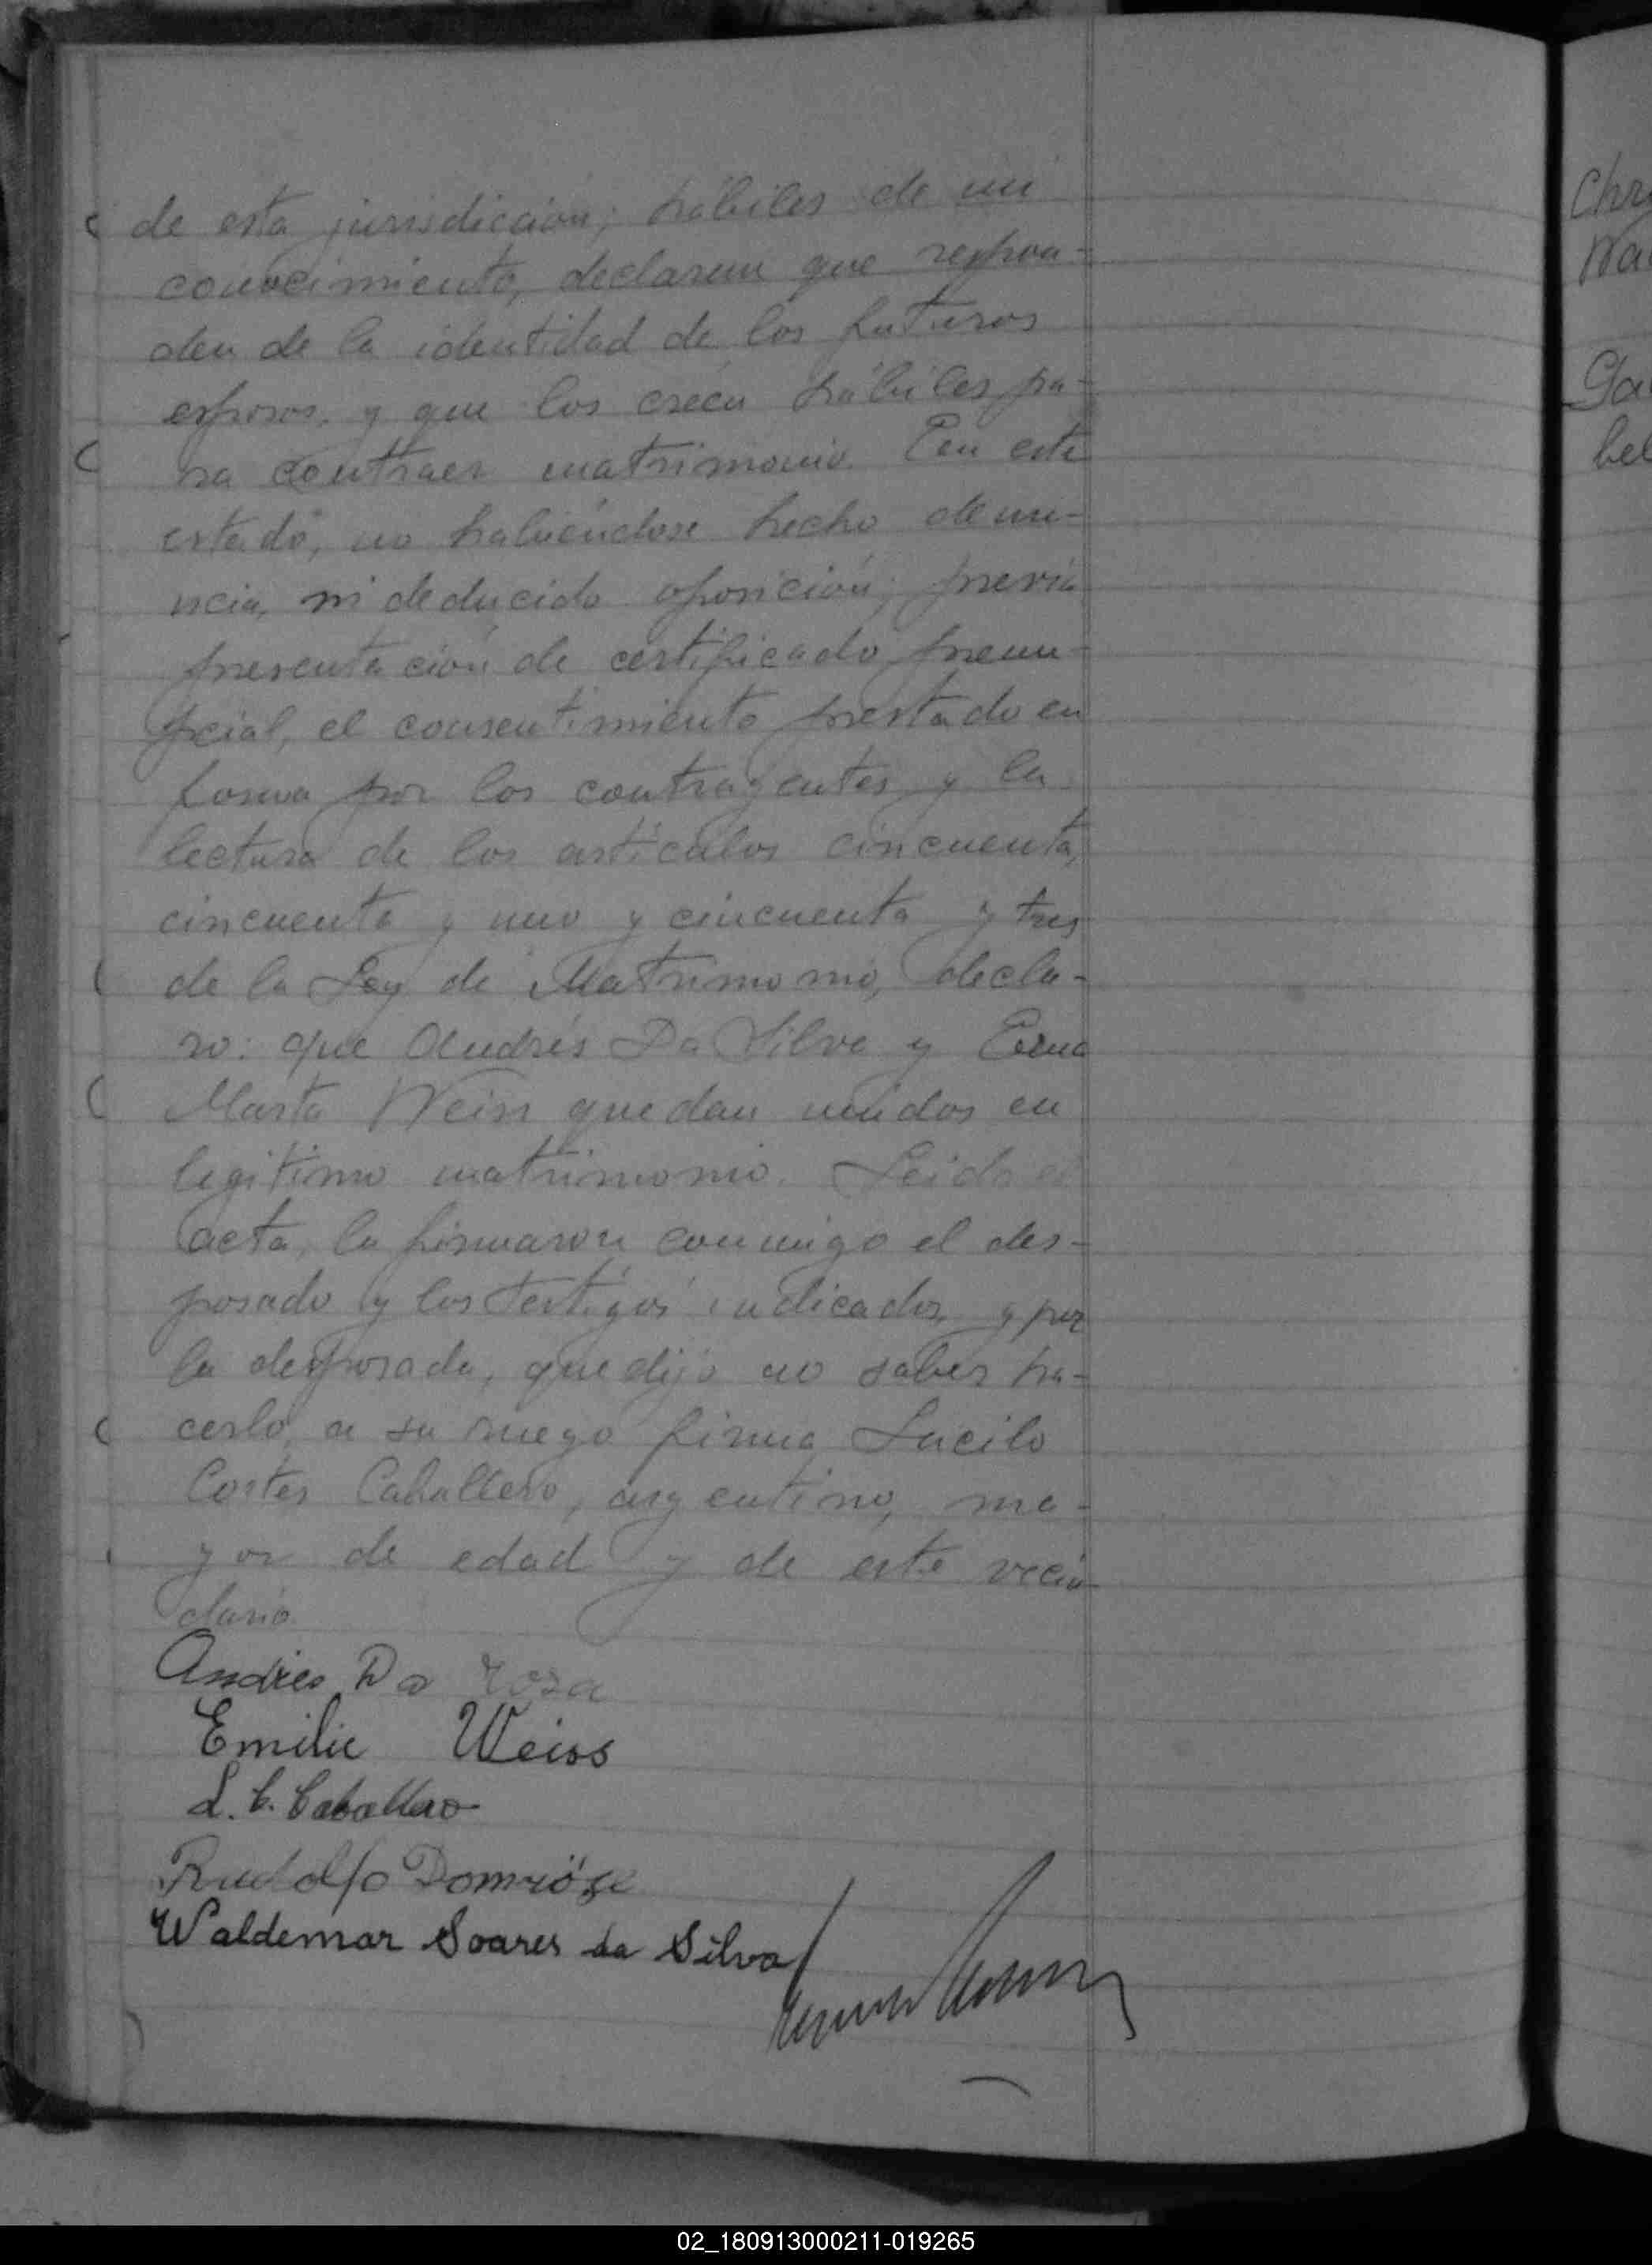 de esta jurisdicción; hábiles de mi
conocimiento, declaran que respon-
den de la identidad de los futuros
esposos, y que los creen hábiles pa-
ra contraer matrimonio. En este
estado, no habiéndose hecho denun-
ncia, ni deducido oposición; previa
presentación de certificado prenu-
pcial, el consentimiento prestado en
forma por los contrayentes y la
lectura de los artículos cincuenta,
cincuenta y uno y cincuenta y tres
de la Ley de Matrimonio, decla-
ro: que Andrés Da Silva y Erna
Marta Weiss quedan unidos en
legítimo matrimonio. Leida el
acta, la firmaron conmigo el des-
posado y los testigos indicados, y por
la desposada, que dijo no saber ha-
cerlo, a su ruego firma Lucilo
Cortes Caballero, argentino, ma-
yor de edad y de este vecin-
dario.
Andres Da Rosa
Emilie Weiss
L. C. Caballero
Rudolfo Domröse
Waldemar Soares da Silva
Chr
Wa
Ga
bel
02_180913000211-019265